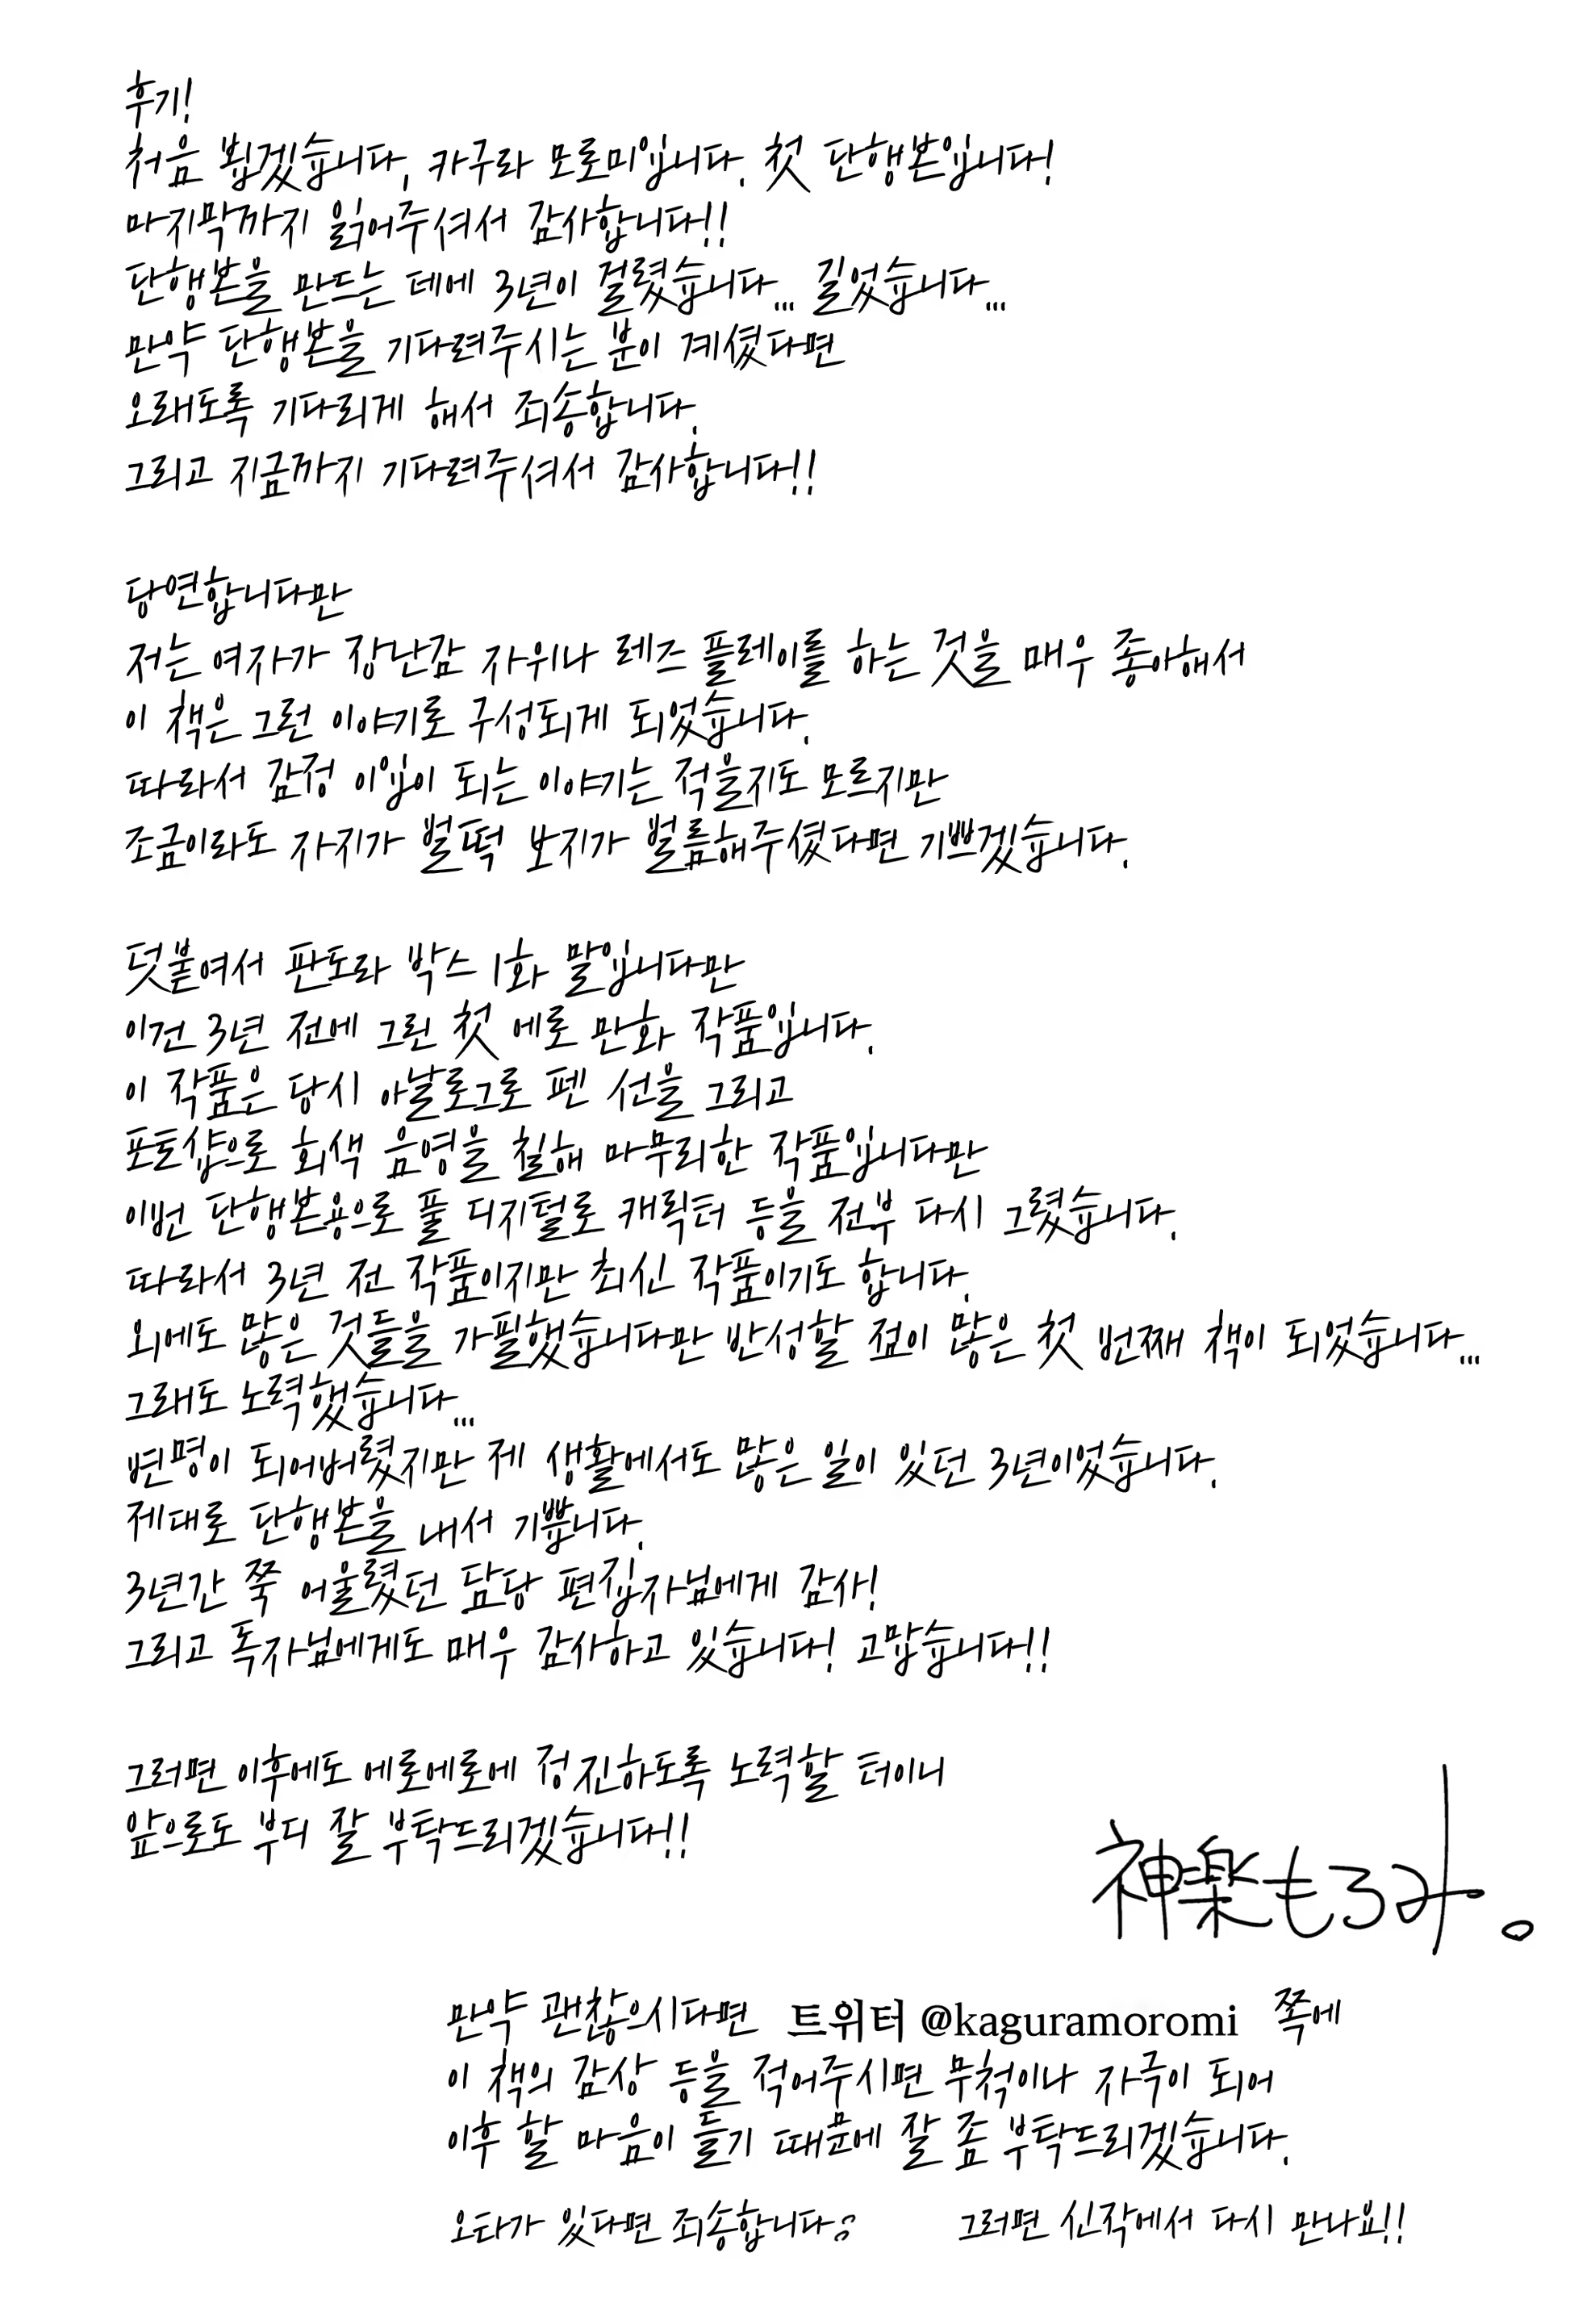 후기!
처음 뵙겠습니다, 카구라 모로미입니다. 첫 단행본입니다!
마지막까지 읽어주셔서 감사합니다!!
단행본을 만드는 데에 3년이 걸렸습니다... 길었습니다...
만약 단행본을 기다려주시는 분이 계셨다면
오래도록 기다리게 해서 죄송합니다.
그리고 지금까지 기다려주셔서 감사합니다!!
당연합니다만
저는 여자가 장난감 자위나 레즈 플레이를 하는 것을 매우 좋아해서
이 책은 그런 이야기로 구성되게 되었습니다.
따라서 감정 이입이 되는 이야기는 적을지도 모르지만
조금이라도 자지가 벌떡 보지가 벌름해주셨다면 기쁘겠습니다.
덧붙여서 판도라 박스 1화 말입니다만
이건 3년 전에 그린 첫 에로 만화 작품입니다.
이 작품은 당시 아날로그로 펜 선을 그리고
포토샵으로 회색 음영을 칠해 마무리한 작품입니다만
이번 단행본용으로 풀 디지털로 캐릭터 등을 전부 다시 그렸습니다.
따라서 3년 전 작품이지만 최신 작품이기도 합니다.
외에도 많은 것들을 가필했습니다만 반성할 점이 많은 첫 번째 책이 되었습니다...
그래도 노력했습니다...
변명이 되어버렸지만 제 생활에서도 많은 일이 있던 3년이었습니다.
제대로 단행본을 내서 기쁩니다.
3년간 쭉 어울렸던 담당 편집자님에게 감사!
그리고 독자님에게도 매우 감사하고 있습니다! 고맙습니다!!
그러면 이후에도 에로에로에 정진하도록 노력할 터이니
앞으로도 부디 잘 부탁드리겠습니다!!
神楽もろみ。
만약 괜찮으시다면 트위터 @kaguramoromi 쪽에
이 책의 감상 등을 적어주시면 무척이나 자극이 되어
이후 할 마음이 들기 때문에 잘 좀 부탁드리겠습니다.
오타가 있다면 죄송합니다;; 그러면 신작에서 다시 만나요!!